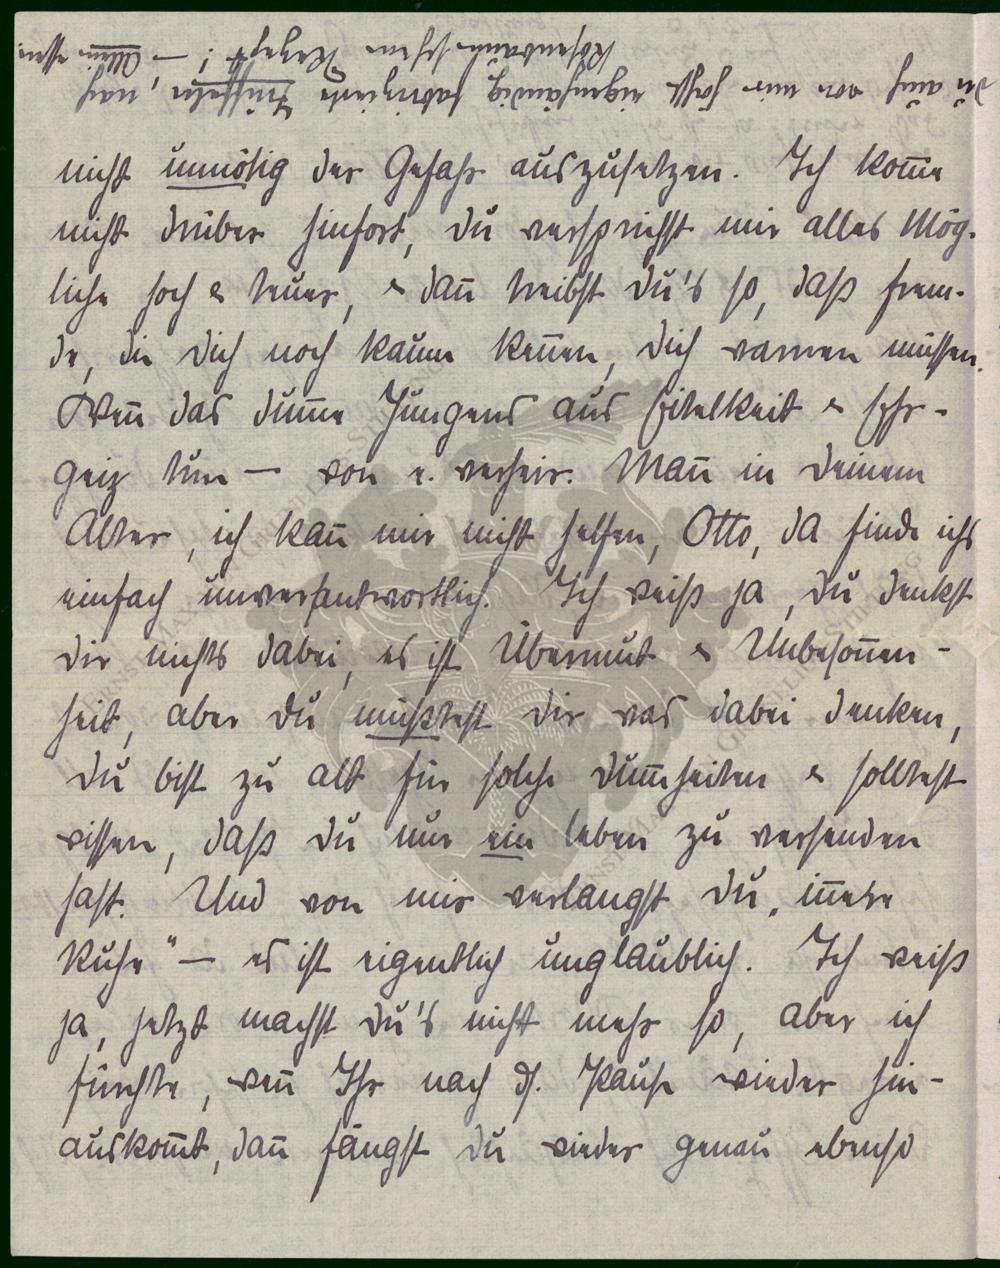 du auch von mir höchst eigenhändig fabrizierte Trüffeln, nach
Rosenbaum'schem Rezept! — Allein essen
nicht unnötig der Gefahr auszusetzen. Ich kom̄e
nicht drüber hinfort, du versprichst mir alles Mög-
liche hoch & teuer, & dan̄ treibst du's so, daß frem-
de, die dich noch kaum ken̄en, dich warnen müssen.
Wen̄ das dum̄e Jungens aus Eitelkeit & Ehr-
geiz tun — von e. verheir. Man̄ in deinem
Alter, ich kan̄ mir nicht helfen, Otto, da finde ichs
einfach unverantwortlich. Ich weiß ja, du denkst
dir nichts dabei, es ist Übermut & Unbeson̄en-
heit, aber du müßtest dir was dabei denken,
du bist zu alt für solche Dum̄heiten & solltest
wissen, daß du nur ein Leben zu versenden
hast. Und von mir verlangst du „in̄ere
Ruhe" — es ist eigentlich unglaublich. Ich weiß
ja, jetzt machst du's nicht mehr so, aber ich
fürchte, wen̄ Ihr nach d. Pause wieder hin-
auskom̄t, dan̄ fängst du wieder genau ebenso
ERNST MAX